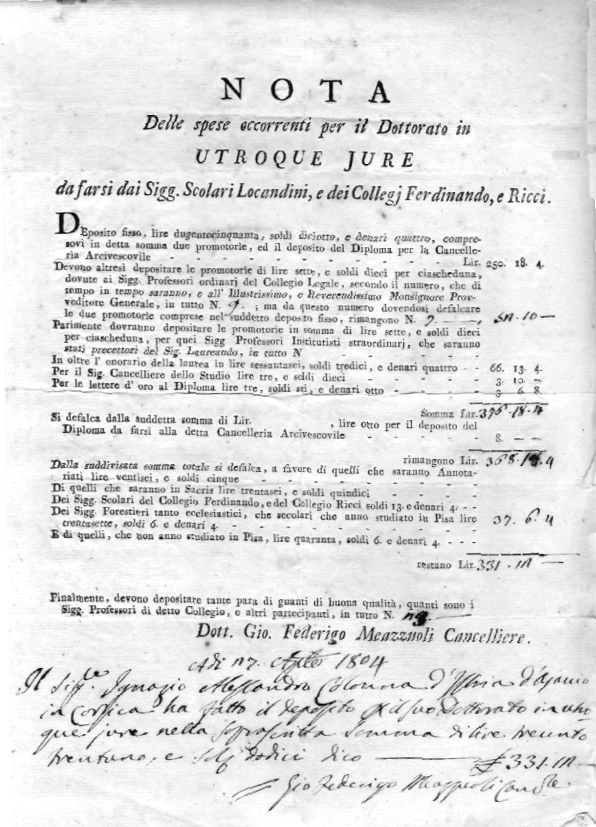 NOTA
Delle spese occorrenti per il Dottorato in
UTROQUE JURE
da farsi dai Sigg. Scolari Locandini, e dei Collegj Ferdinando, e Ricci.
DEposito fisso, lire dugentocinquanta, soldi diciotto, e denari quattro, compre-
sovi in detta somma due promotorie, ed il deposito del Diploma per la Cancelle-
ria Arcivescovile - - - - - - - - - - - Lir. 250. 18. 4.
Devono altresi depositare le promotorie di lire sette, e soldi dieci per ciascheduna,
dovute ai Sigg. Professori ordinarj del Collegio Legale, secondo il numero, che di
tempo in tempo saranno, e all' Illustrissimo, e Reverendissimo Monsignore Prov-
veditore Generale, in tutto N. 9. ; ma da questo numero dovendosi defalcare
le due promotorie comprese nel suddetto deposito fisso, rimangono N. 7. - - 52. 10 —
Parimente dovranno depositare le promotorie in somma di lire sette, e soldi dieci
per ciascheduna, per quei Sigg Professori Institutisti straordinarj, che saranno
stati precettori del Sig. Laureando, in tutto N
In oltre l' onorario della laurea in lire sessantasei, soldi tredici, e denari quattro - - 66. 13. 4.
Per il Sig. Cancelliere dello Studio lire tre, e soldi dieci - - - - - 3. 10. —
Per le lettere d' oro al Diploma lire tre, soldi sei, e denari otto - - - - 3. 6. 8.
Somma Lir. 376. 18. 4
Si defalca dalla suddetta somma di Lir. , lire otto per il deposito del
Diploma da farsi alla detta Cancelleria Arcivescovile - - - - - 8. — —
rimangono Lir. 368. 18. 4
Dalla suddivisata somma totale si defalca, a favore di quelli che saranno Annota-
riati lire ventisei, e soldi cinque - - - - - - - -
Di quelli che saranno in Sacris lire trentasei, e soldi quindici - - - -
Dei Sigg. Scolari del Collegio Ferdinando, e del Collegio Ricci soldi 13. e denari 4. - -
Dei Sigg. Forestieri tanto ecclesiastici, che secolari che anno studiato in Pisa lire
trentasette, soldi 6. e denari 4. - - - - - - - - 37. 6. 4
E di quelli, che non anno studiato in Pisa, lire quaranta, soldi 6. e denari 4 - - -
restano Lir. 331. 12 —
Finalmente, devono depositare tante para di guanti di buona qualità, quanti sono i
Sigg. Professori di detto Collegio, e altri partecipanti, in tutto N.
Dott. Gio. Federigo Meazzuoli Cancelliere.
Adi 1804
Il Sigre. Ignazio Alessandro Colonna d'Istria d'Ajaccio
in Corsica ha fatto il deposito p il suo Dottorato in utro
que jure nella soprascritta somma di lire trecento
trentuno, e soldi dodici dico — £ 331. 12 —
Gio Federigo Meazzuoli Cancle